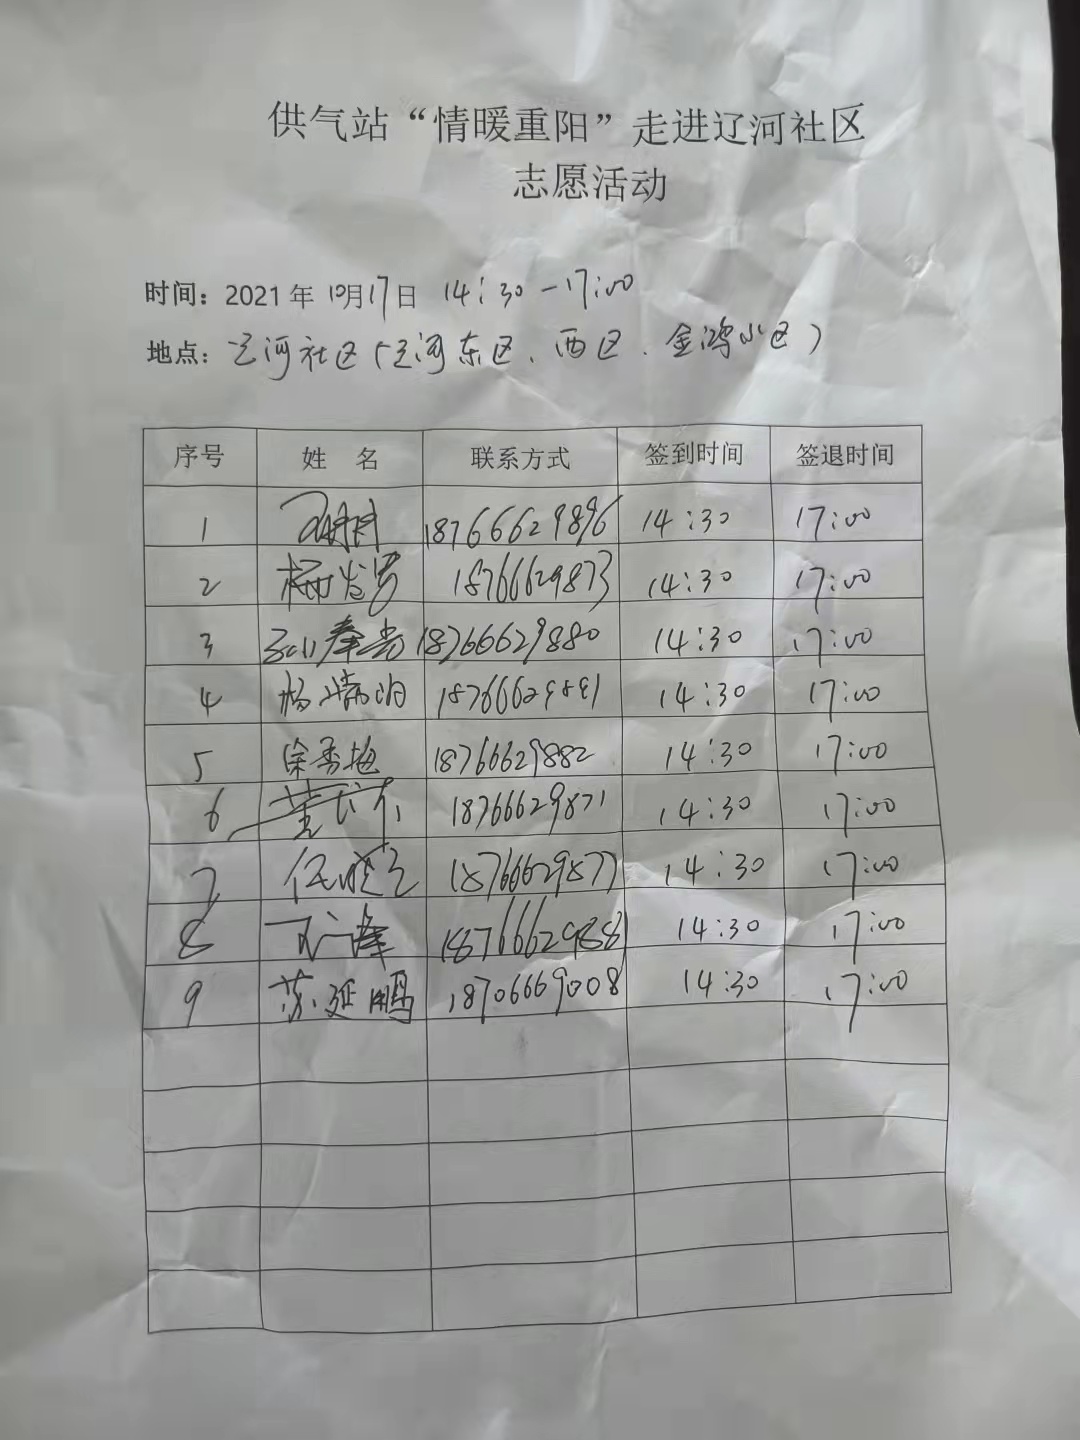 供气站“情暖重阳”走进辽河社区
志愿活动
时间：2021年10月17日 14:30-17:00
地点：辽河社区（辽河东区、西区、金鸿小区）
序号 姓 名 联系方式 签到时间 签退时间
1 18766629896 14:30 17:00
2 18766629873 14:30 17:00
3 18766629880 14:30 17:00
4 18766629891 14:30 17:00
5 徐秀梅 18766629882 14:30 17:00
6 18766629871 14:30 17:00
7 任晓云 18766629877 14:30 17:00
8 14:30 17:00
9 苏延鹏 18706669008 14:30 17:00